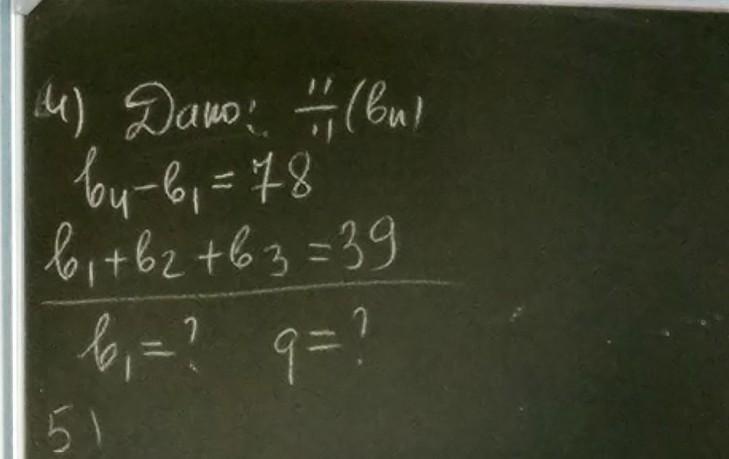 4) Дано: ∺(bn)
b4-b1=78
b1+b2+b3=39
b1=? q=?
5)